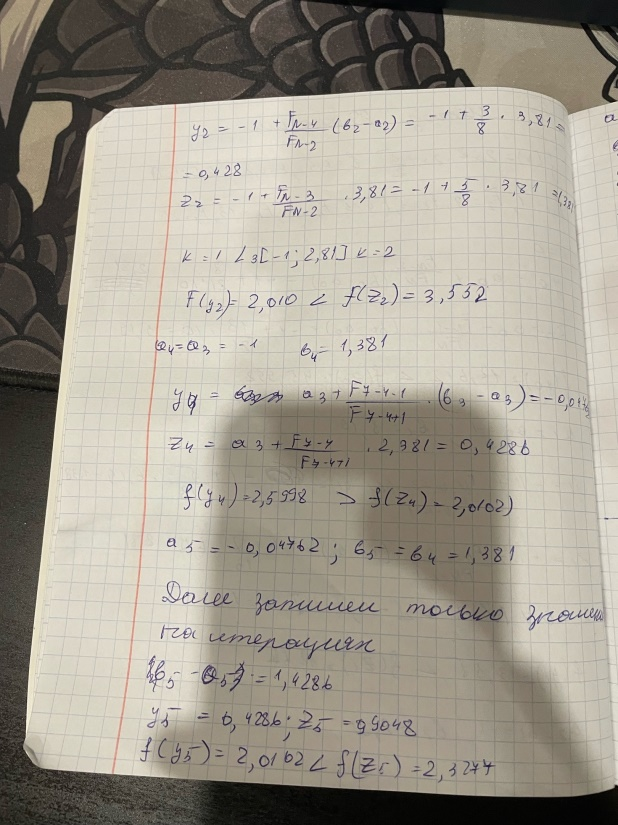 y₂ = -1 + F_{N-4}/F_{N-2} (b₂ - a₂) = -1 + 3/8 · 3,81 =
= 0,428
z₂ = -1 + F_{N-3}/F_{N-2} · 3,81 = -1 + 5/8 · 3,81 = 1,381
k = 1 L₃ [-1; 2,81] k = 2
F(y₂) = 2,010 < f(z₂) = 3,552
a₄ = a₃ = -1 b₄ = 1,381
y₄ = a₃ + F_{7-4-1}/F_{7-4+1} · (b₃ - a₃) = -0,0476
z₄ = a₃ + F_{7-4}/F_{7-4+1} · 2,381 = 0,4286
f(y₄) = 2,5998 > f(z₄) = 2,0102)
a₅ = -0,04762 ; b₅ = b₄ = 1,381
Далее запишем только значени
на итерациях
b₅ - a₅ = 1,4286
y₅ = 0,4286; z₅ = 0,9048
f(y₅) = 2,0102 < f(z₅) = 2,3277